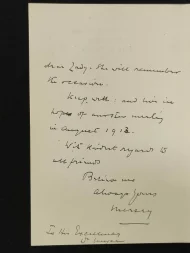 dear Lady. She will remember
the occasion.
Keep well; and live in
hopes of another meeting
in August 1912.
With kindest regards to
all friends
Believe me
Always yours
Mersey
To His Excellency